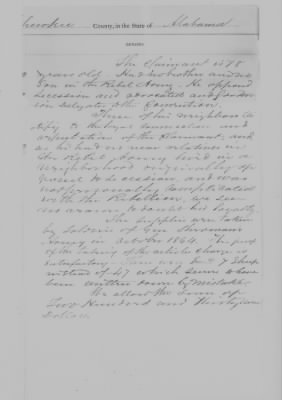 Cherokee County, in the State of Alabama
REMARKS
The Claimant is 78
years old. Has no brother and no
Son in the Rebel Army. He opposed
secession and advocated and voted for
Delegates to the Convention.
Three of his neighbors
testify to the loyal connection and
reputation of the Claimant, and
as he had no near relatives in
the Rebel Army lived in a
Neighborhood originally op
posed to secession and was
not personally complicated
with the Rebellion, we see
no reason to doubt his loyalty.
The supplies are taken
by Soldiers of Gen Shermans
Army in October 1864. The proof
of the taking of the articles charged
satisfactory. 7 Sheep
instead of 47 which seems to have
been written down by mistake.
We allow the sum of
Two Hundred and Thirty
Dollars